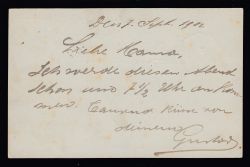 7. Sept. 1902
Liebe Mama,
Ich werde diesen Abend
schon um 7½ Uhr an kom
men. Tausend Küsse von
deinem
Gustav